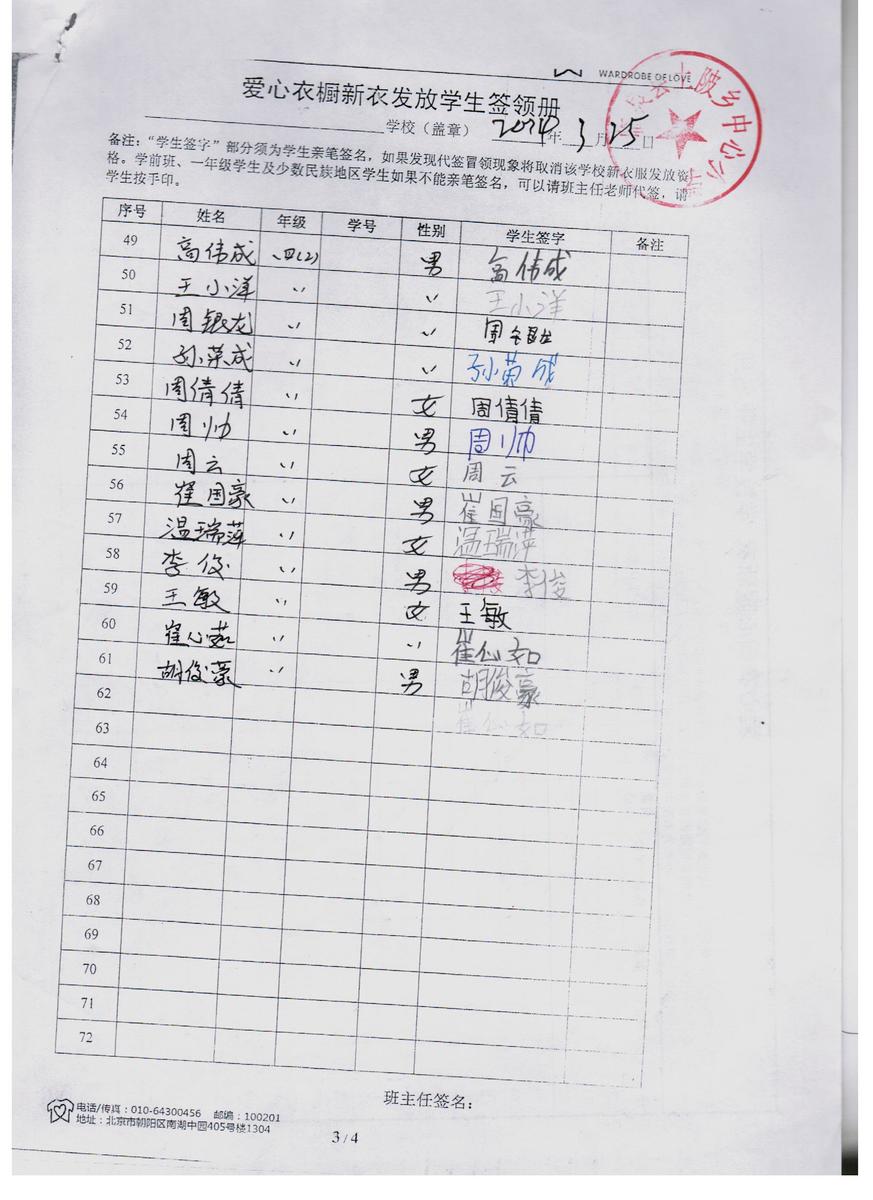 WARDROBE OF LOVE
爱心衣橱新衣发放学生签领册
学校（盖章） 2014年 3月 25日
上陂乡中心小
备注：“学生签字”部分须为学生亲笔签名，如果发现代签冒领现象将取消该学校新衣服发放资
格。学前班、一年级学生及少数民族地区学生如果不能亲笔签名，可以请班主任老师代签，请
学生按手印。
序号 姓名 年级 学号 性别 学生签字 备注
49 高伟成 四(2) 男 高伟成
50 王小洋 〃 〃 王小洋
51 周银龙 〃 〃 周银龙
52 孙荣成 〃 〃 孙荣成
53 周倩倩 〃 女 周倩倩
54 周帅 〃 男 周帅
55 周云 〃 女 周云
56 崔国豪 〃 男 崔国豪
57 温瑞萍 〃 女 温瑞萍
58 李俊 〃 男 李俊
59 王敏 〃 女 王敏
60 崔心茹 〃 〃 崔心如
61 胡俊豪 〃 男 胡俊豪
62 崔心如
63
64
65
66
67
68
69
70
71
72
班主任签名：
电话/传真：010-64300456 邮编：100201
地址：北京市朝阳区南湖中园405号楼1304
3 / 4